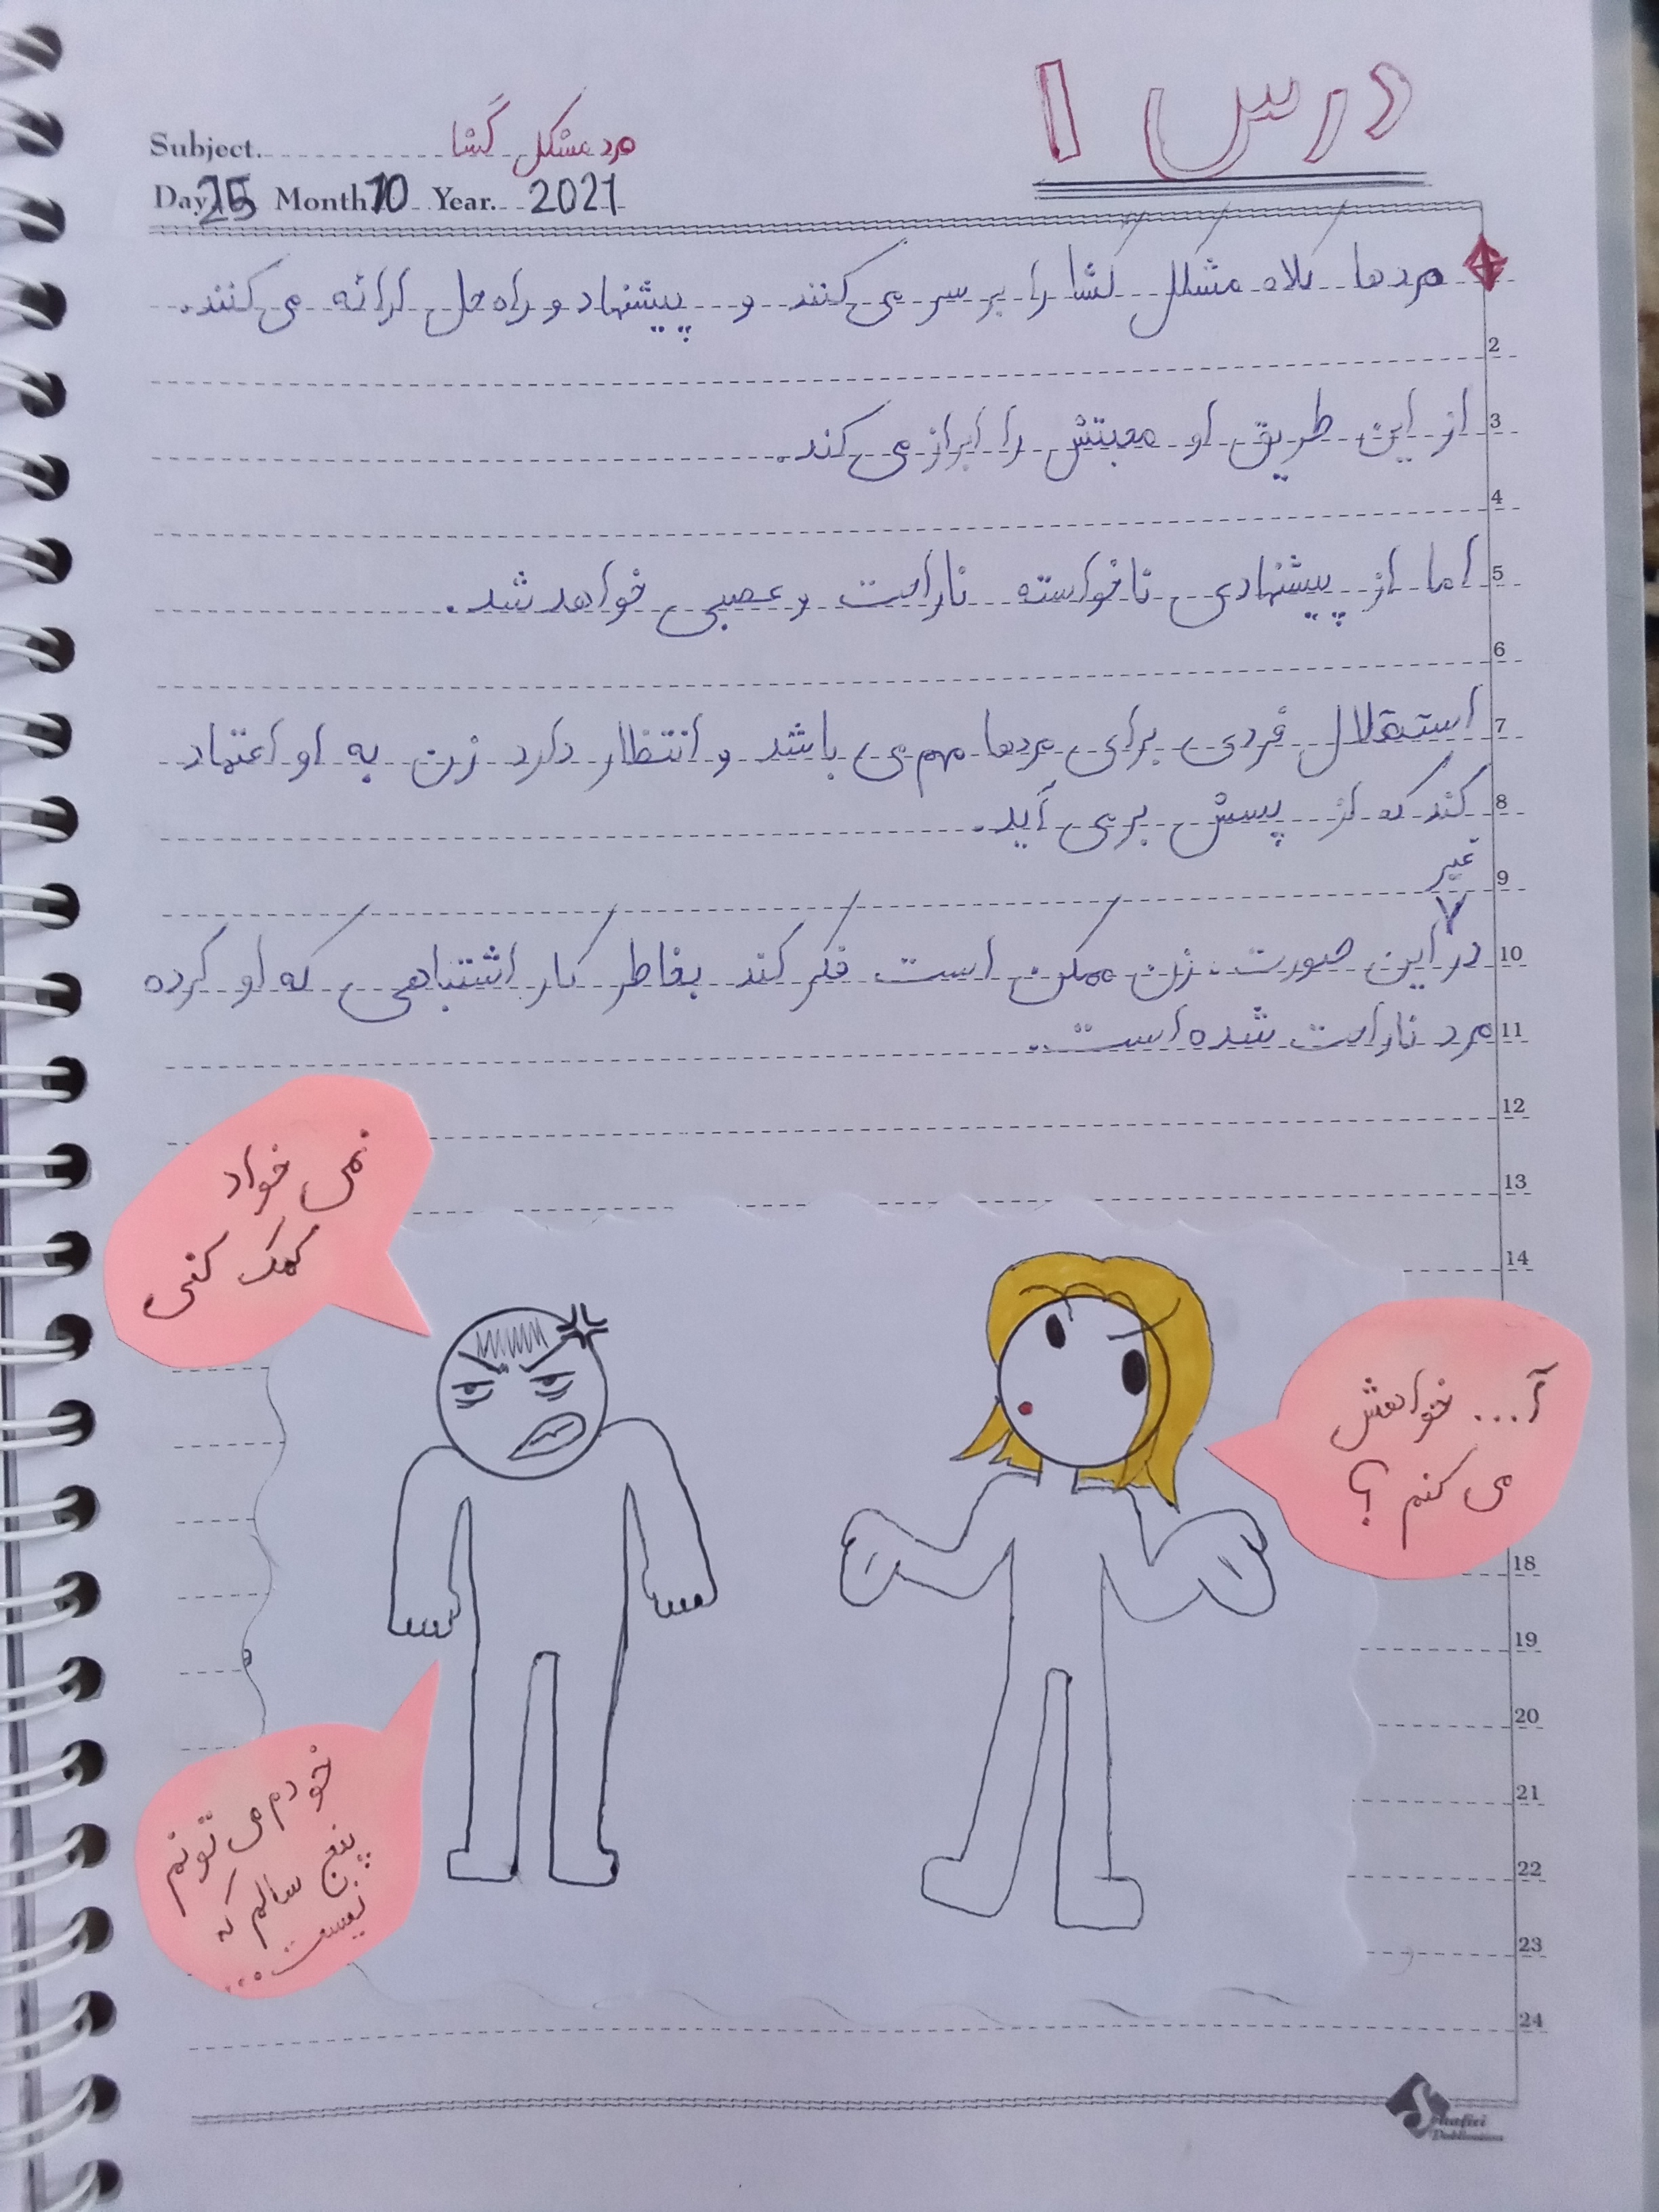 درس ۱
Subject. مرد مشکل گشا
Day. 25 Month 10 Year. 2021
مردها کلاه مشکل گشا را بر سر می کنند و پیشنهاد و راه حل ارائه می کنند.
2
3 از این طریق او محبتش را ابراز می کند.
4
5 اما از پیشنهادی ناخواسته ناراحت و عصبی خواهد شد.
6
7 استقلال فردی برای مردها مهم می باشد و انتظار دارد زن به او اعتماد
8 کند که از پسش بر می آید.
9 غیر
10 در این صورت، زن ممکن است فکر کند بخاطر کار اشتباهی که او کرده
11 مرد ناراحت شده است.
12
13
14
نمی خواد
کمک کنی
آ... خواهش
می کنم؟
18
19
20
21
22
23
24
خودم می تونم
پنج سالم که
نیست...
Shafiei
Publications